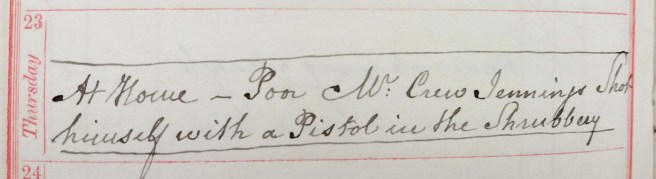 23
Thursday
At Home – Poor Mr. Crew Jennings Shot
himself with a Pistol in the Shrubbery
24